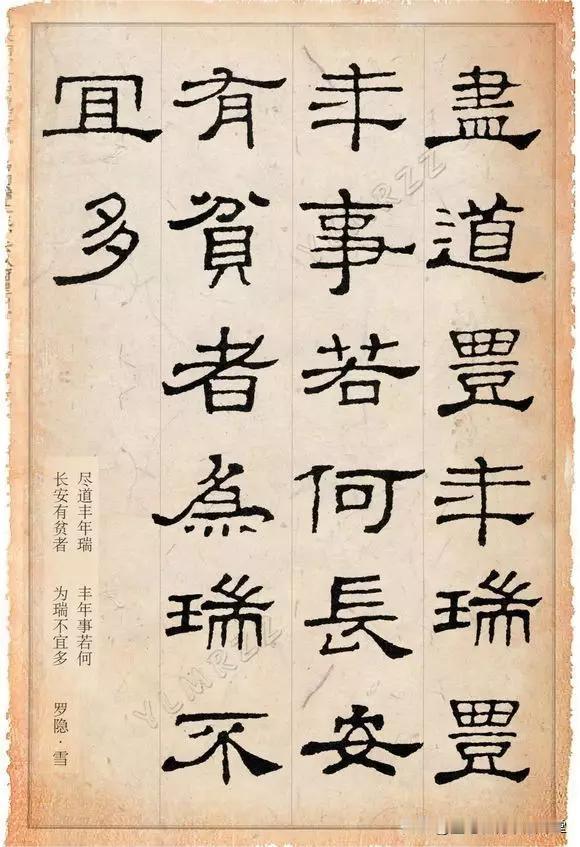 盡道豐年瑞豐
年事若何長安
有貧者為瑞不
宜多
尽道丰年瑞 丰年事若何
长安有贫者 为瑞不宜多
罗隐·雪
YLMRZZ
YLMRZZ